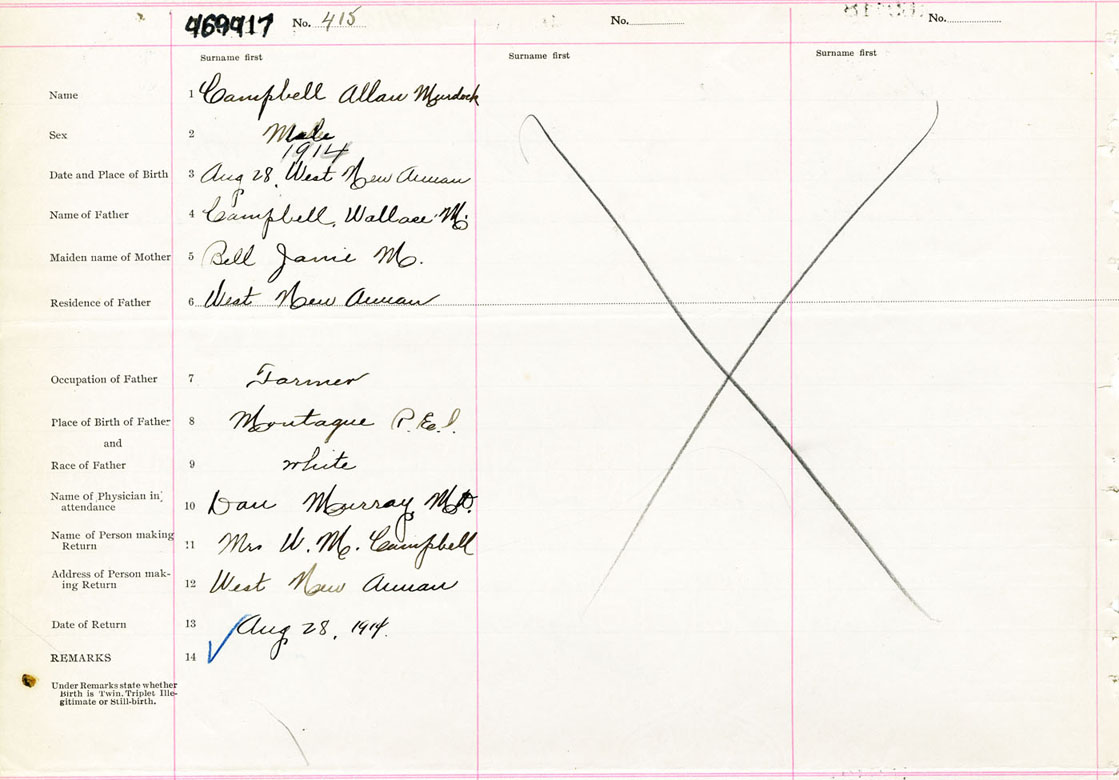 469917 No. 415 No. No.
Surname first Surname first Surname first
Name 1 Campbell Allan Murdock
Sex 2 Male
1914
Date and Place of Birth 3 Aug 28, West New Annan
Name of Father 4 Campbell, Wallace M.
Maiden name of Mother 5 Bell Janie M.
Residence of Father 6 West New Annan
Occupation of Father 7 Farmer
Place of Birth of Father 8 Montague P.E.I.
and
Race of Father 9 white
Name of Physician in
attendance 10 Dan Murray M.D.
Name of Person making
Return 11 Mrs W. M. Campbell
Address of Person mak-
ing Return 12 West New Annan
Date of Return 13 Aug 28, 1914.
REMARKS 14
Under Remarks state whether
Birth is Twin, Triplet Ille-
gitimate or Still-birth.